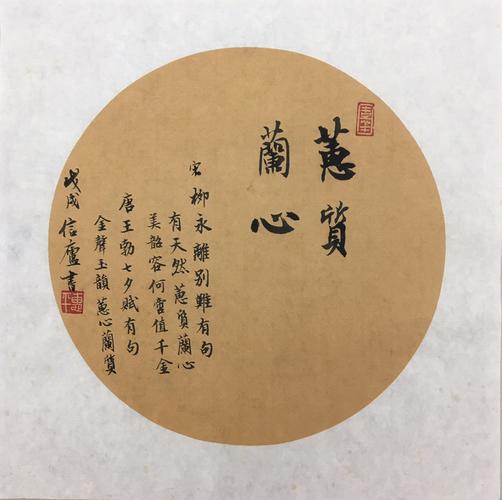 蕙質
蘭心
宋柳永離別難有句
有天然蕙質蘭心
美韶容何啻值千金
唐王勃七夕賦有句
金聲玉韻蕙心蘭質
戊戌信廬書